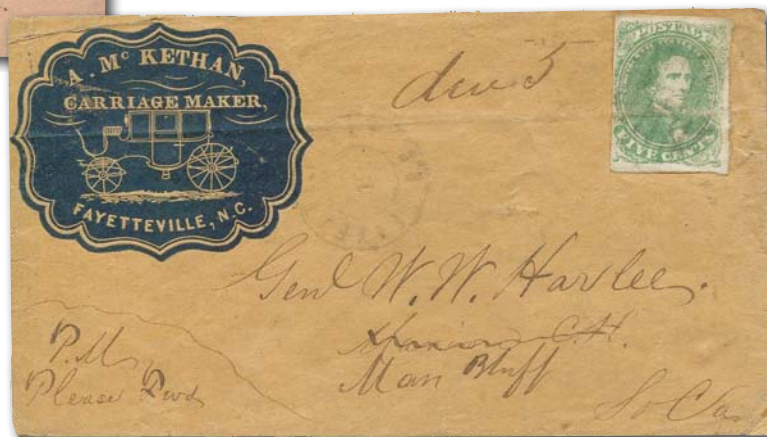 A. Mc KETHAN,
CARRIAGE MAKER,
FAYETTEVILLE, N.C.
due 5
POSTAGE
FIVE CENTS
Genl W. W. Harlee.
Marion C.H.
Mars Bluff
So Ca
P.M.
Please Fwd